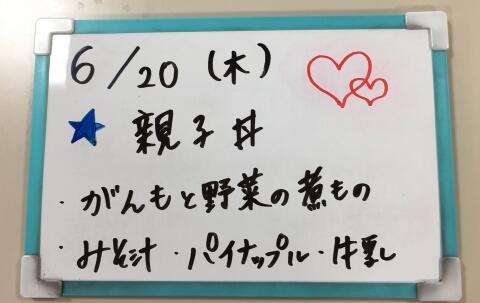 6/20(木)
親子丼
・がんもと野菜の煮もの
・みそ汁・パイナップル・牛乳